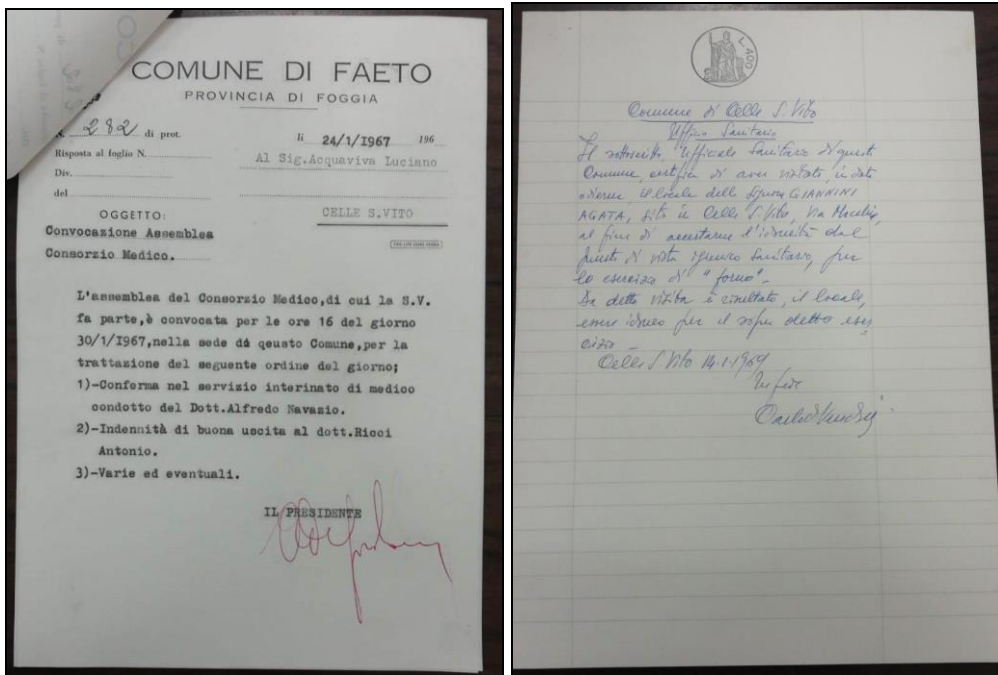 COMUNE DI FAETO
PROVINCIA DI FOGGIA
N. 282 di prot.
li 24/1/I967 196
Risposta al foglio N.
Al Sig.Acquaviva Luciano
Div.
del
CELLE S.VITO
OGGETTO:
Convocazione Assemblea
Consorzio Medico.
L'assemblea del Consorzio Medico,di cui la S.V.
fa parte,è convocata per le ore 16 del giorno
30/1/I967,nella sede di qeusto Comune,per la
trattazione del seguente ordine del giorno;
1)-Conferma nel servizio interinato di medico
condotto del Dott.Alfredo Navazio.
2)-Indennità di buona uscita al dott.Ricci
Antonio.
3)-Varie ed eventuali.
IL PRESIDENTE
L. 400
Comune di Celle S. Vito
Ufficio Sanitario
Il sottoscritto, Ufficiale Sanitario di questo
Comune, certifica di aver visitato, in data
odierna il locale della Signora GIANNINI
AGATA, sito in Celle S. Vito, Via
al fine di accertarne l'idoneità dal
punto di vista igienico sanitario, per
lo esercizio di "forno".
Da detta visita è risultato, il locale,
essere idoneo per il sopra detto eser
cizio -
Celle S. Vito 14.1.1969
In fede